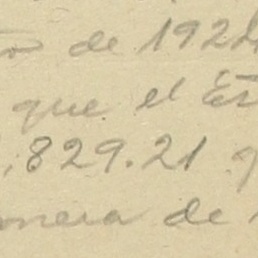 de 192
que el Es
,829.21 q
onera de